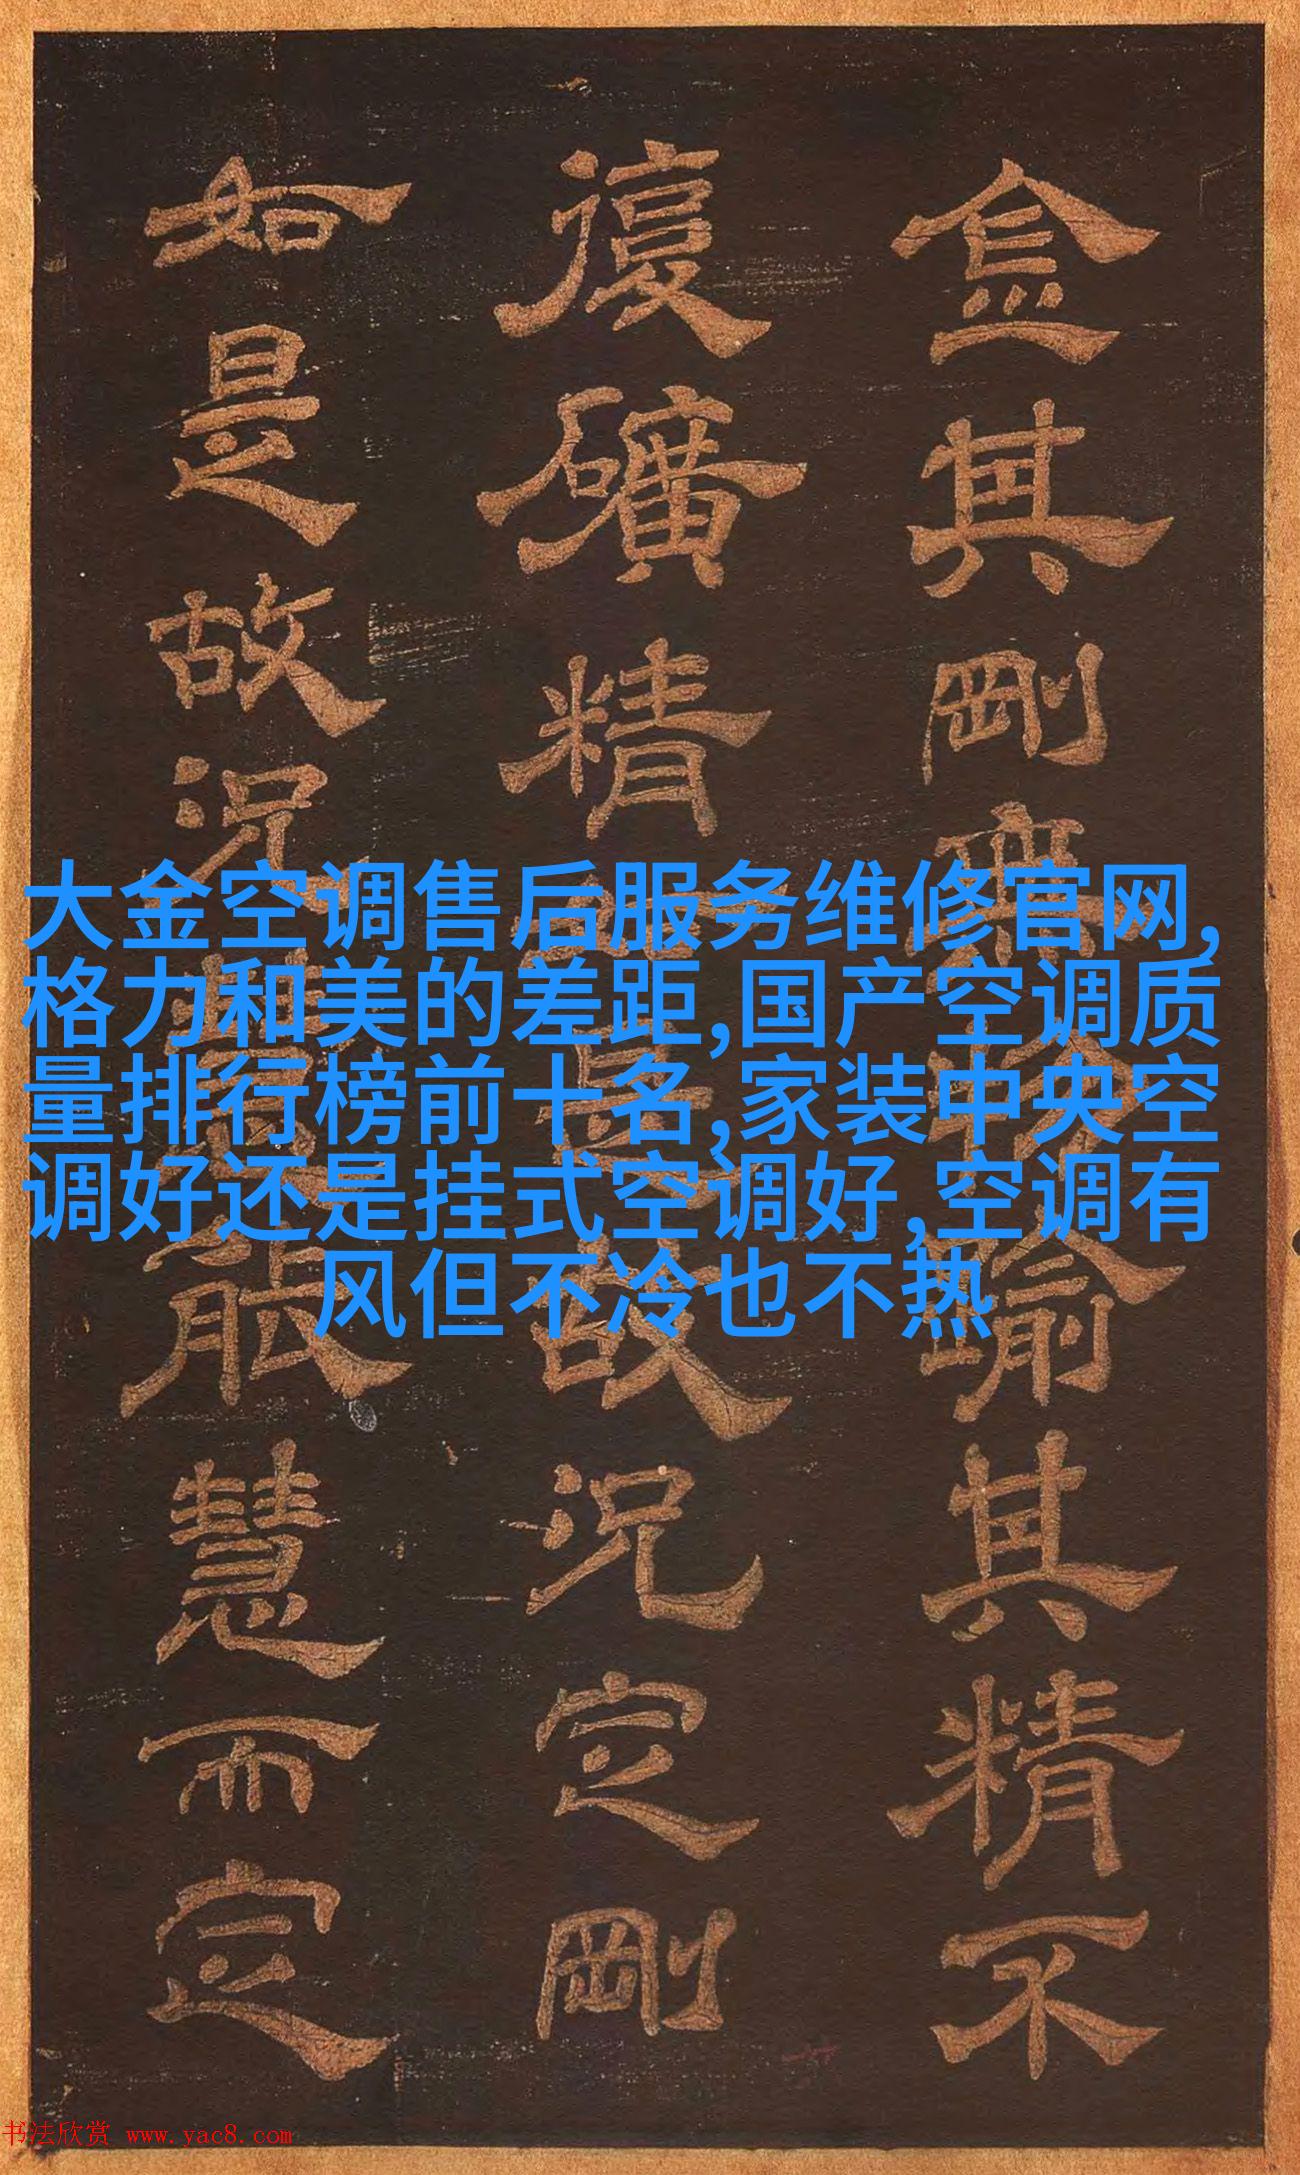 金其剛無其精不
復礦精是故況定剛
如是故況能慧而定
大金空调售后服务维修官网,
格力和美的差距,国产空调质
量排行榜前十名,家装中央空
调好还是挂式空调好,空调有
风但不冷也不热
书法欣赏 www.yac8.com